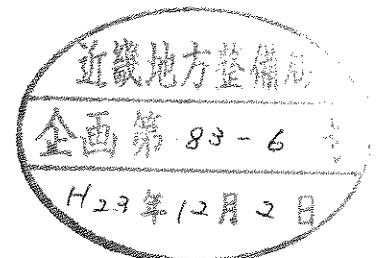 近畿地方整備局
企画第 83-6 号
H23年12月2日